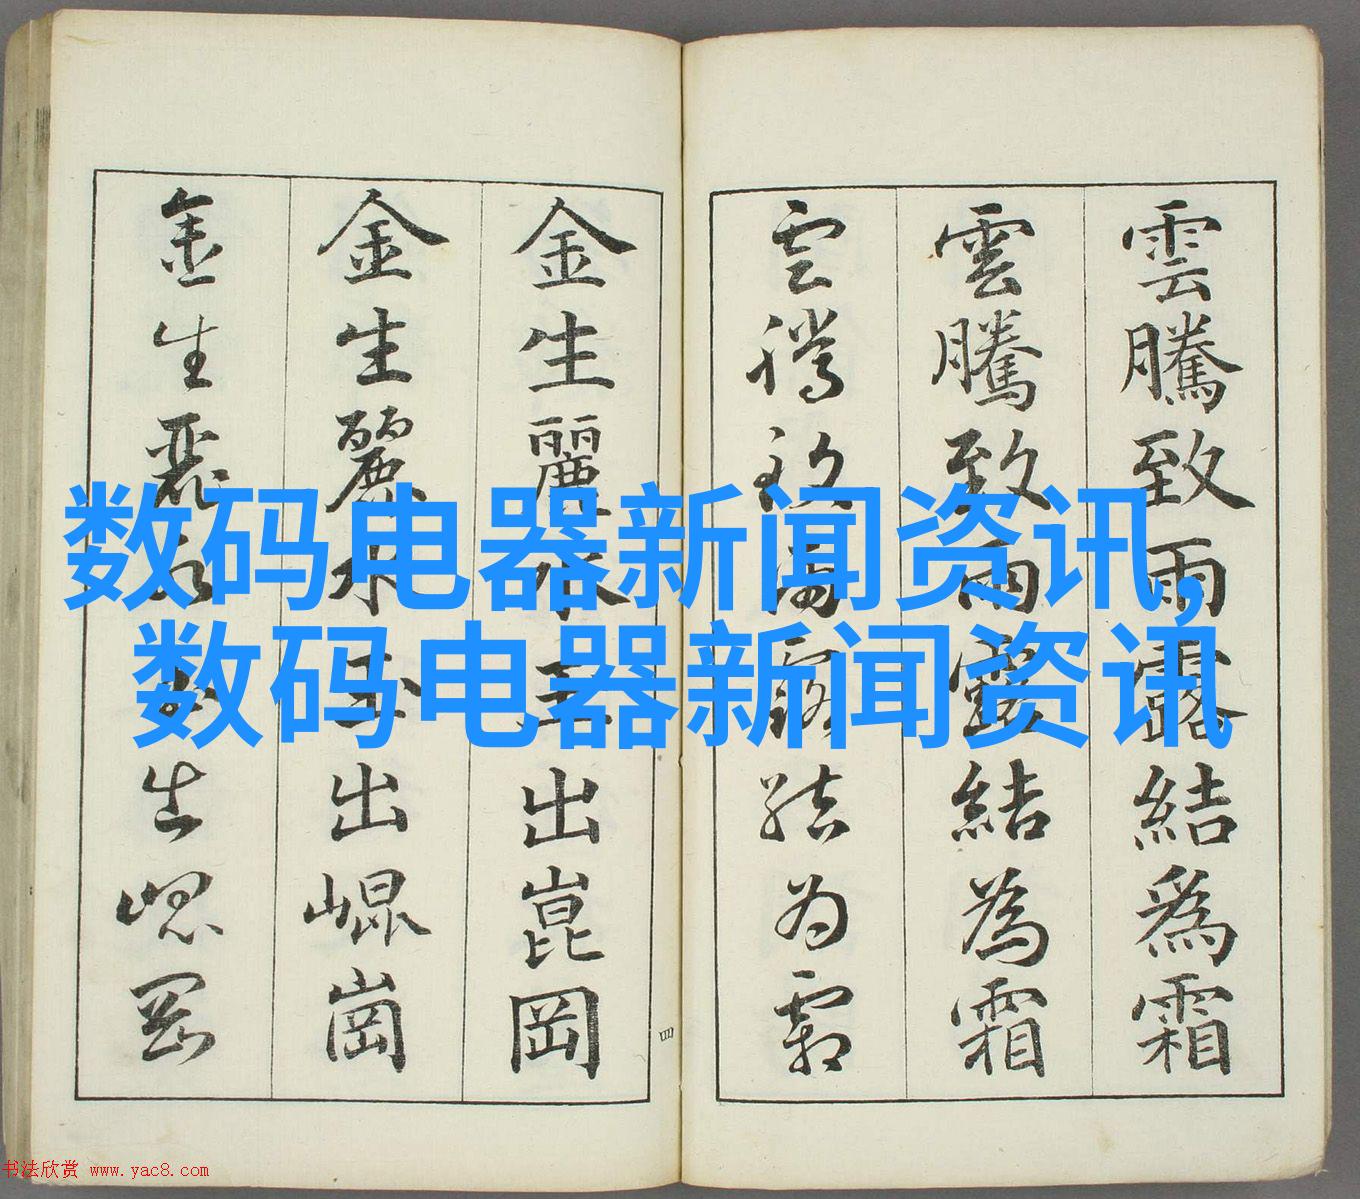 雲騰致雨露結爲霜
雲騰致雨露結為霜
雲騰致雨露結为霜
四
金生麗水玉出崑岡
金生麗水玉出崐崗
金生麗水玉出崐岡
数码电器新闻资讯,
数码电器新闻资讯
书法欣赏 www.yac8.com